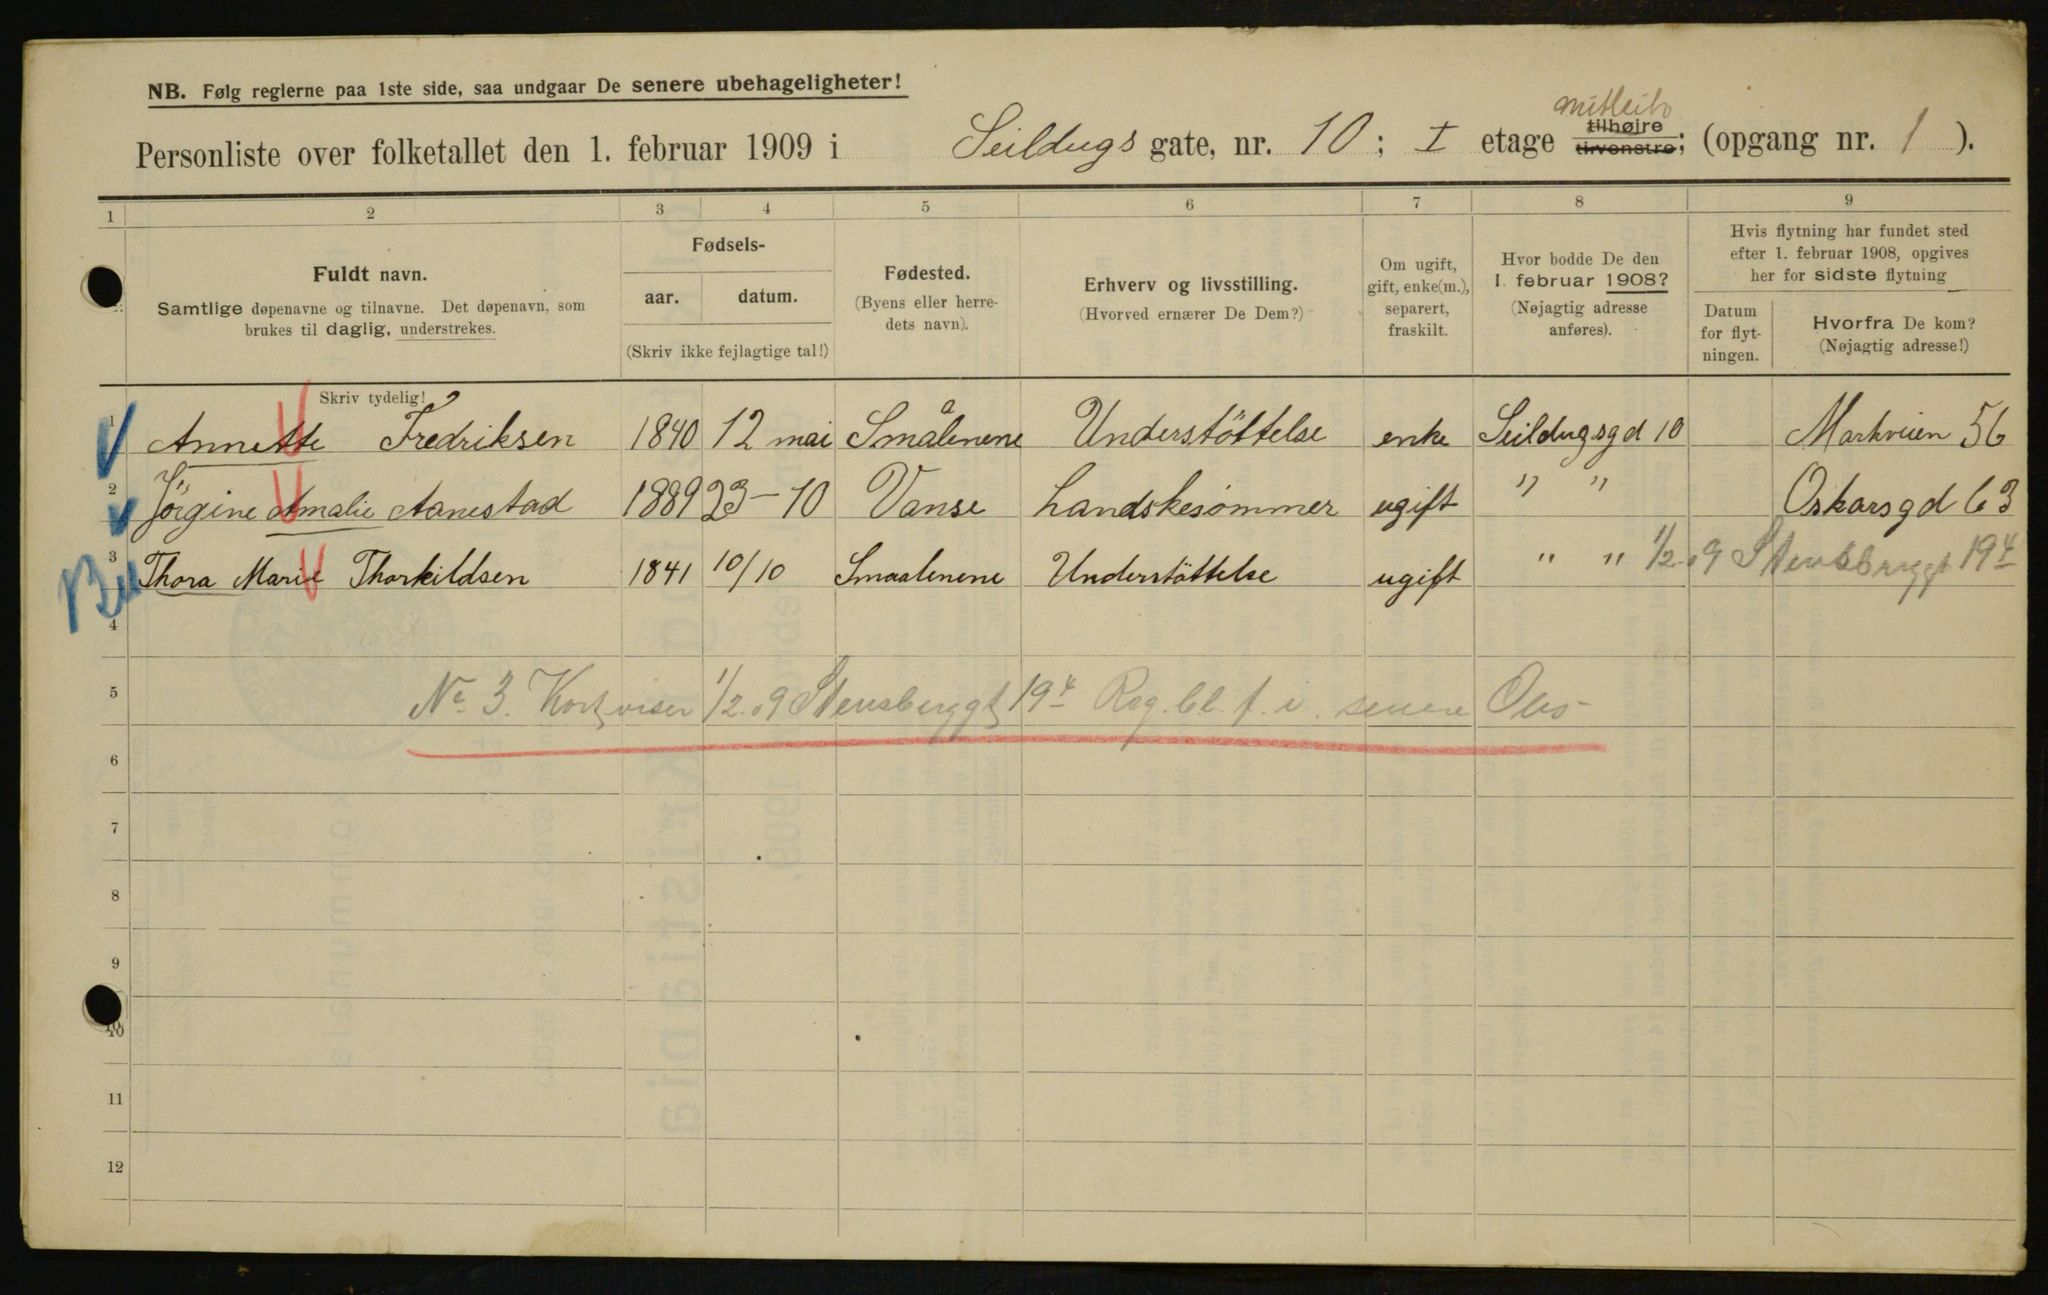 NB. Følg reglerne paa 1ste side, saa undgaar De senere ubehageligheter!
Personliste over folketallet den 1. februar 1909 i Seildugs gate, nr. 10; I etage tilhøjre tilvenstre; (opgang nr. 1).
1 2 3 4 5 6 7 8 9
Fuldt navn.
Samtlige døpenavne og tilnavne. Det døpenavn, som
brukes til daglig, understrekes.
Fødsels-
aar. datum.
(Skriv ikke fejlagtige tal!)
Fødested.
(Byens eller herre-
dets navn).
Erhverv og livsstilling.
(Hvorved ernærer De Dem?)
Om ugift,
gift, enke(m.),
separert,
fraskilt.
Hvor bodde De den
1. februar 1908?
(Nøjagtig adresse
anføres).
Hvis flytning har fundet sted
efter 1. februar 1908, opgives
her for sidste flytning
Datum
for flyt-
ningen.
Hvorfra De kom?
(Nøjagtig adresse!)
Skriv tydelig!
1 Annette Fredriksen 1840 12 mai Smålenene Understöttelse enke Seildugsgd 10 Markveien 56
2 Jörgine Amalie Aanestad 1889 23-10 Vanse Handskesømmer ugift " " Oskarsgd 63
3 Thora Marie Thorkildsen 1841 10/10 Smaalenene Understöttelse ugift " " 1/2.09 Stensbryggt 19 4
4
5 No 3. Kort viser 1/2.09 Stensberggt 19 4 Reg. bl. f. i. senere Obs
6
7
8
9
10
11
12